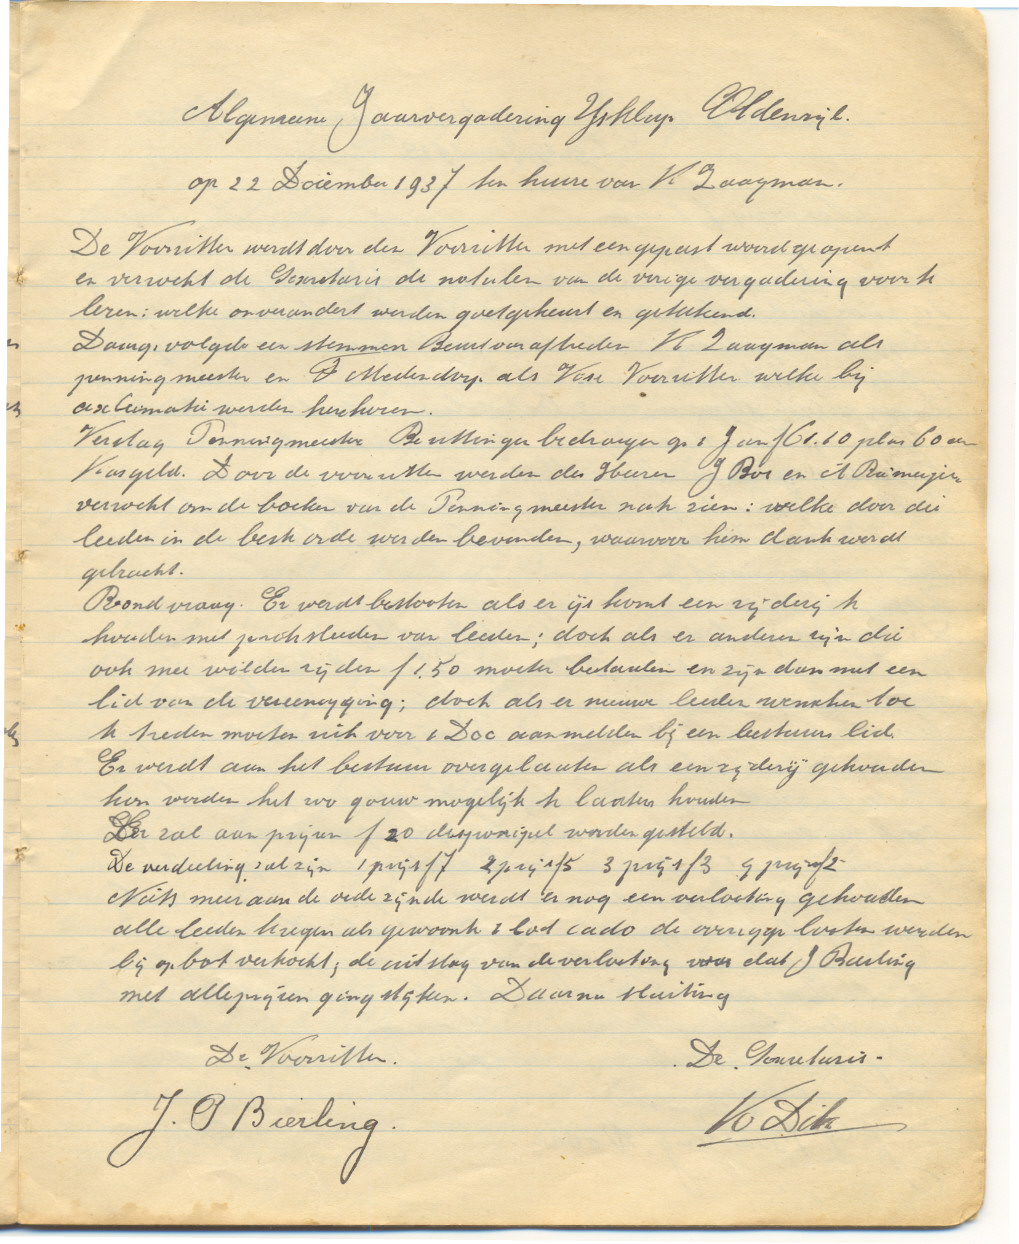 Algemeene Jaarvergadering Ysklup Oldenzijl.
op 22 Decimber 1937 ten huure van K Zaayman.
De Voorzitter werdt door den Voorzitter met een gepast woord geopent
en verzocht de Secretaris de notulen van de vorige vergadering voor te
lezen: welke onverandert werden goetgekeurt en getekend.
volgde een stemmen Bestuursaftreden K Zaayman als
penningmeester en F Medendorp als Vise Voorzitter welke bij
acclamatie werden herkozen.
Verslag Penningmeester Bezittingen bedroegen op 1 Jan f 61.10 plus 60 cen
Kasgeld. Door de voorzitter werden des Heeren J Bos en
verzocht om de boeken van de Penningmeester nah zien: welke door die
leeden in de beste orde werden bevonden, waarvoor hem dank werdt
gebracht.
Rondvraag. Er werdt besloten als er ijs komt een rijderij te
houden met priksleeden van leeden; doch als er anderen zijn die
ook mee wilden rijden f 1.50 moeten betaalen en zijn dan met een
lid van de vereeneging; doch als er nieuwe leeden wenschen toe
te treden moeten zich voor 1 Dec aanmelden bij een bestuurs lid.
Er werdt aan het bestuur overgelaaten als een rijderij gehouden
kon worden het zoo gauw mogelijk te laaten houden
Er zal aan prijzen f 20 worden gesteld.
De verdeeling zal zijn 1 prijs f7 2 prijs f5 3 prijs f3 4 prijs f2
Niets meer aan de orde zijnde werdt er nog een verlooting gehouden
alle leeden kregen als gewoonte 1 lot cado de overige looten werden
bij opbot verkocht; de uitslag van de verlooting was dat J Bierling
met alle prijzen ging strijken. Daarna sluiting
De Voorzitter. De Secretaris.
J. P Bierling. K Dik